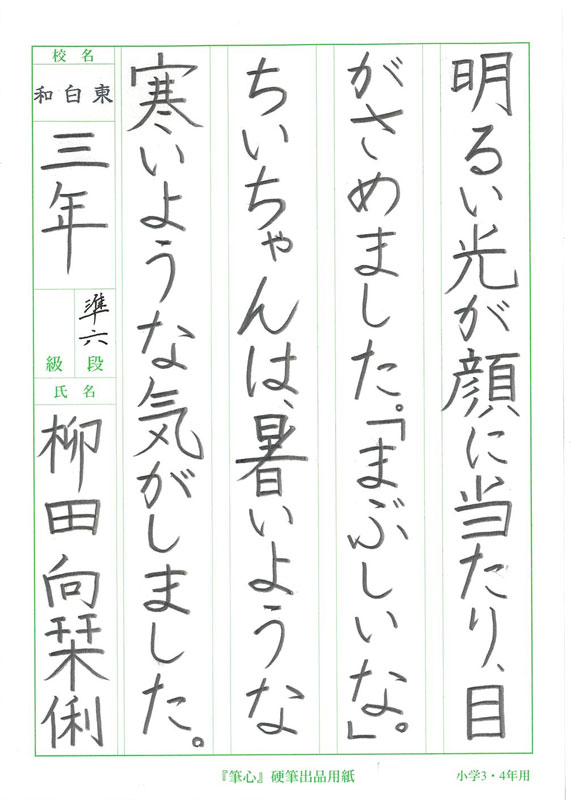 明るい光が顔に当たり、目
がさめました。「まぶしいな」。
ちいちゃんは、暑いような
寒いような気がしました。
校名
東白和
三年
準六
段
級
氏名
柳田向栞俐
『筆心』硬筆出品用紙
小学3・4年用